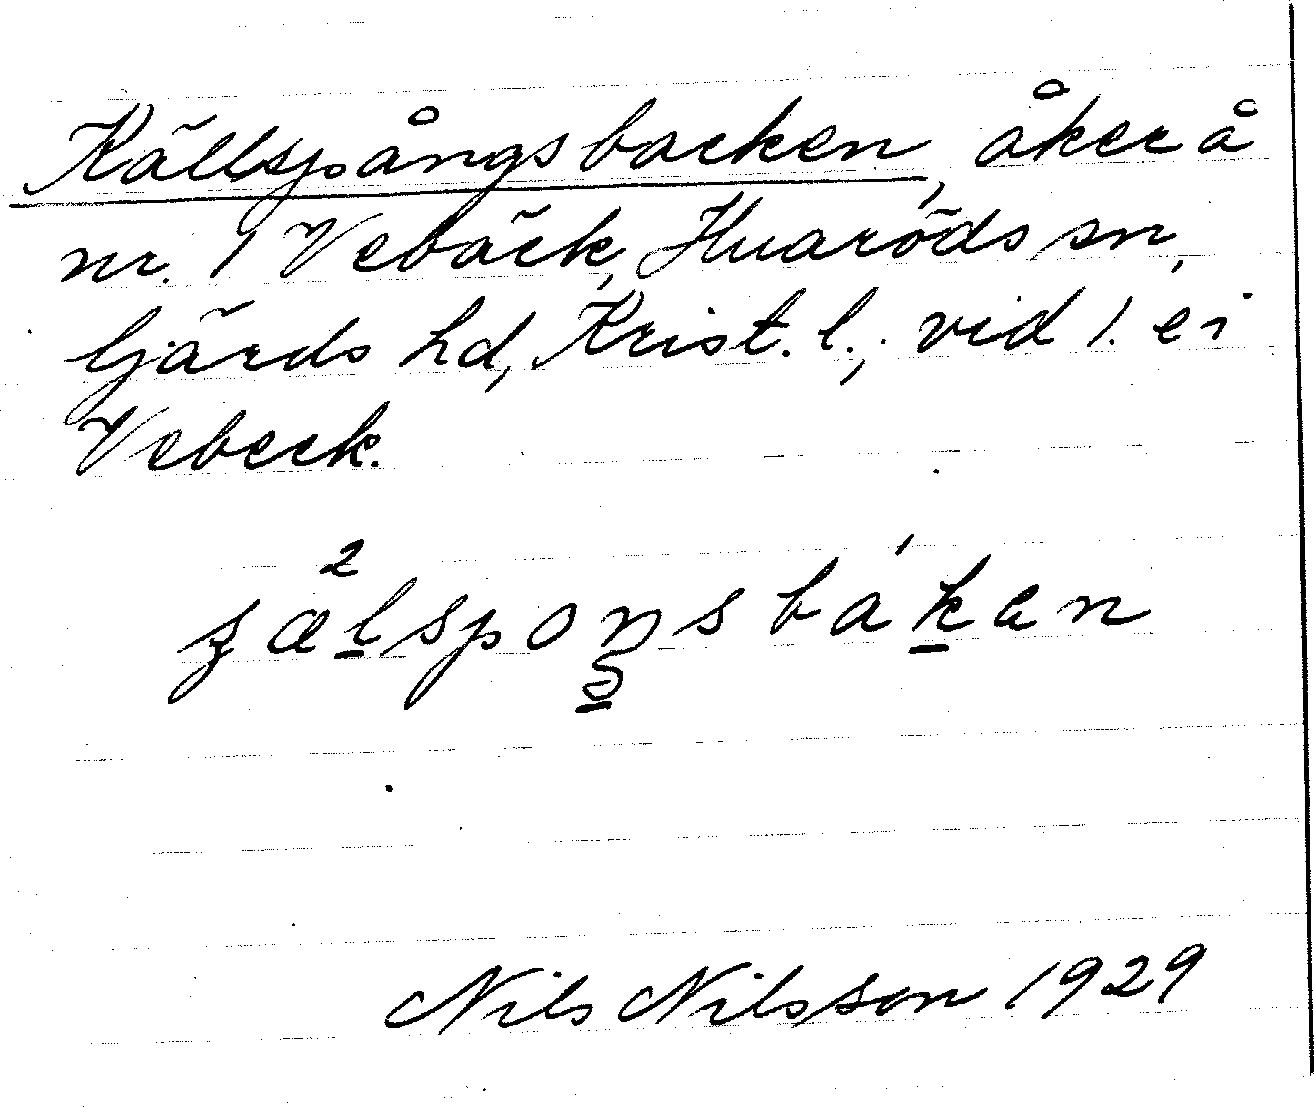 Källspångsbacken, åker å
nr. 1 Vebäck, Huaröds sn,
Gärds hd, Krist. l., vid l. ei
Vebeck.
2
sælsponsbákan
Nils Nilsson 1929